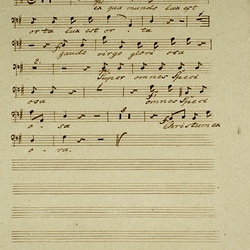 ex qua mundo lux est
orta lux est or - ta
gaude virgo glori osa
2. Super omnes Speci
osa omnes Speci
o - sa Christum ex
o - ra.